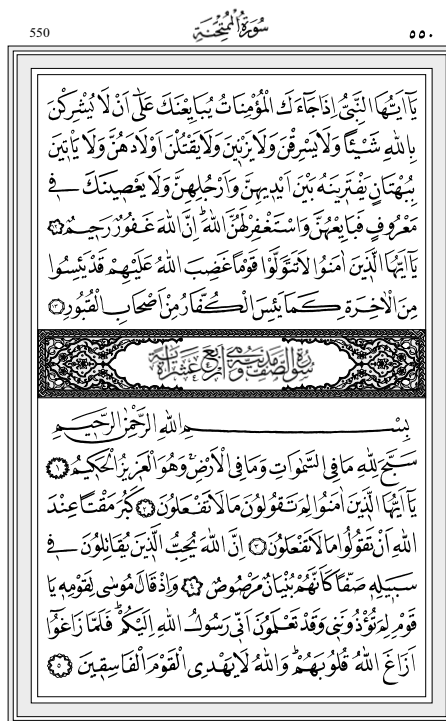 550
سُورَةُ الْمُمْتَحِنَةِ
٥٥٠
يَٓا اَيُّهَا النَّبِيُّ اِذَا جَٓاءَكَ الْمُؤْمِنَاتُ يُبَايِعْنَكَ عَلٰٓى اَنْ لَا يُشْرِكْنَ
بِاللّٰهِ شَيْـًٔا وَلَا يَسْرِقْنَ وَلَا يَزْن۪ينَ وَلَا يَقْتُلْنَ اَوْلَادَهُنَّ وَلَا يَأْت۪ينَ
بِبُهْتَانٍ يَفْتَر۪ينَهُ بَيْنَ اَيْد۪يهِنَّ وَاَرْجُلِهِنَّ وَلَا يَعْص۪ينَكَ ف۪ي
مَعْرُوفٍ فَبَايِعْهُنَّ وَاسْتَغْفِرْ لَهُنَّ اللّٰهَۜ اِنَّ اللّٰهَ غَفُورٌ رَح۪يمٌ ﴿١٢﴾
يَٓا اَيُّهَا الَّذ۪ينَ اٰمَنُوا لَا تَتَوَلَّوْا قَوْمًا غَضِبَ اللّٰهُ عَلَيْهِمْ قَدْ يَئِسُوا
مِنَ الْاٰخِرَةِ كَمَا يَئِسَ الْكُفَّارُ مِنْ اَصْحَابِ الْقُبُورِ ﴿١٣﴾
سُورَةُ الصَّفِّ مَدَنِيَّةٌ وَهِيَ اَرْبَعَ عَشْرَةَ اٰيَةً
بِسْمِ اللّٰهِ الرَّحْمٰنِ الرَّح۪يمِ
سَبَّحَ لِلّٰهِ مَا فِي السَّمٰوَاتِ وَمَا فِي الْاَرْضِۚ وَهُوَ الْعَز۪يزُ الْحَك۪يمُ ﴿١﴾
يَٓا اَيُّهَا الَّذ۪ينَ اٰمَنُوا لِمَ تَقُولُونَ مَا لَا تَفْعَلُونَ ﴿٢﴾ كَبُرَ مَقْتًا عِنْدَ
اللّٰهِ اَنْ تَقُولُوا مَا لَا تَفْعَلُونَ ﴿٣﴾ اِنَّ اللّٰهَ يُحِبُّ الَّذ۪ينَ يُقَاتِلُونَ ف۪ي
سَب۪يلِه۪ صَفًّا كَاَنَّهُمْ بُنْيَانٌ مَرْصُوصٌ ﴿٤﴾ وَاِذْ قَالَ مُوسٰى لِقَوْمِه۪ يَا
قَوْمِ لِمَ تُؤْذُونَن۪ي وَقَدْ تَعْلَمُونَ اَنّ۪ي رَسُولُ اللّٰهِ اِلَيْكُمْۜ فَلَمَّا زَاغُٓوا
اَزَاغَ اللّٰهُ قُلُوبَهُمْۜ وَاللّٰهُ لَا يَهْدِي الْقَوْمَ الْفَاسِق۪ينَ ﴿٥﴾